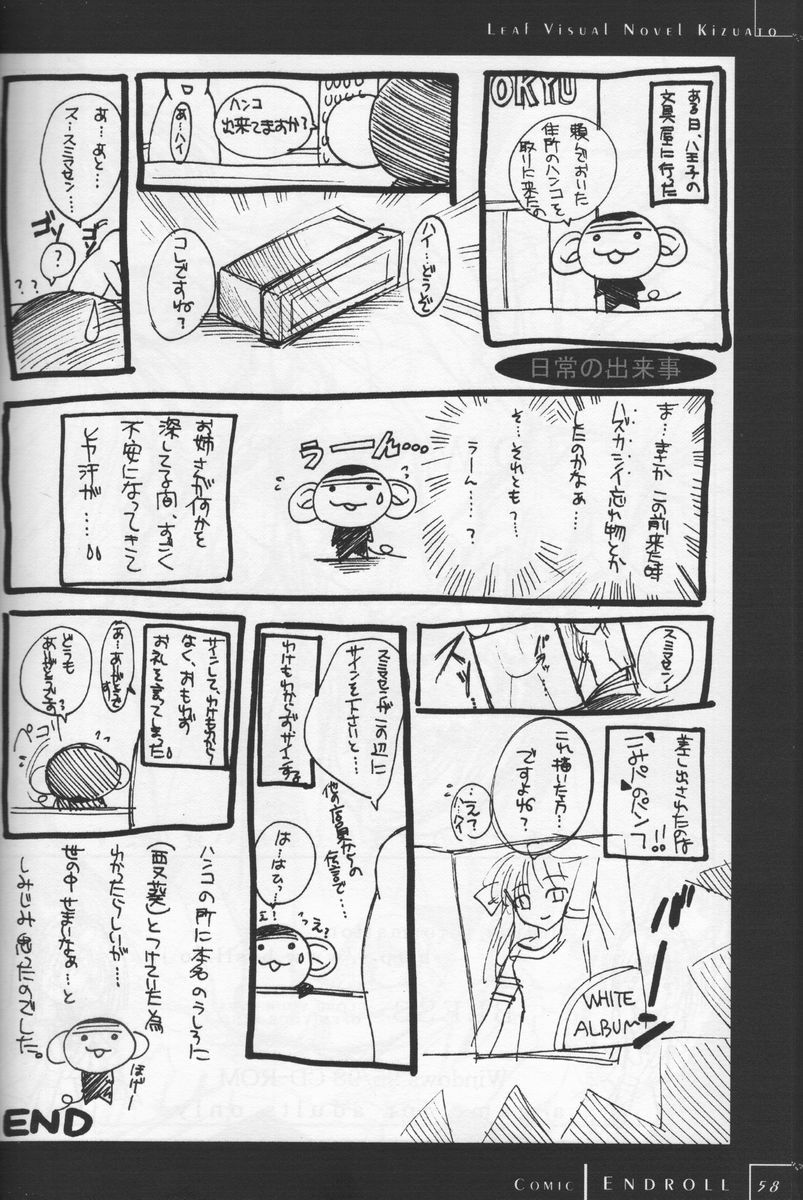 LEAF VISUAL NOVEL KIZUATO
ある日、八王子の
文具屋に行った
OKYU
頼んでおいた
住所のハンコを
取りに来たの
日常の出来事
ハンコ
出来てますか?
あ…ハイ
ハイ…どうぞ
コレですね?
あ…あと…
ス…スミマセン…
ゴソ
ゴソ
?
??
ま…まさかこの前来た時
ハズカシイ忘れ物とか
したのかなぁ…
そ…それとも?…
うーん……?
うーん…
お姉さんが何かを
探してる間、すごく
不安になってきて
ヒヤ汗が……
スミマセン!
パラッ
差し出されたのは
こみパのパンフ!!
これ描いた方…
ですよね?
…え?
ハ…ハイ
WHITE
ALBUM
スミマセンがこの辺に
サインを下さいと…
他の店員からの
伝言で…
わけもわからずサインする
は…はひっ…!
っえ?
サインして、わけもわから
なく、おもわず
お礼を言ってしまった。
あ…ありがとうございます
どうも
ありがとうございます?
ペコ
ハンコの所に本名のうしろに
(要葵)とつけていた為
わかったらしいが…
世の中せまいなぁ…と
しみじみ思ったのでした。
ほげー
END
COMIC ENDROLL 58